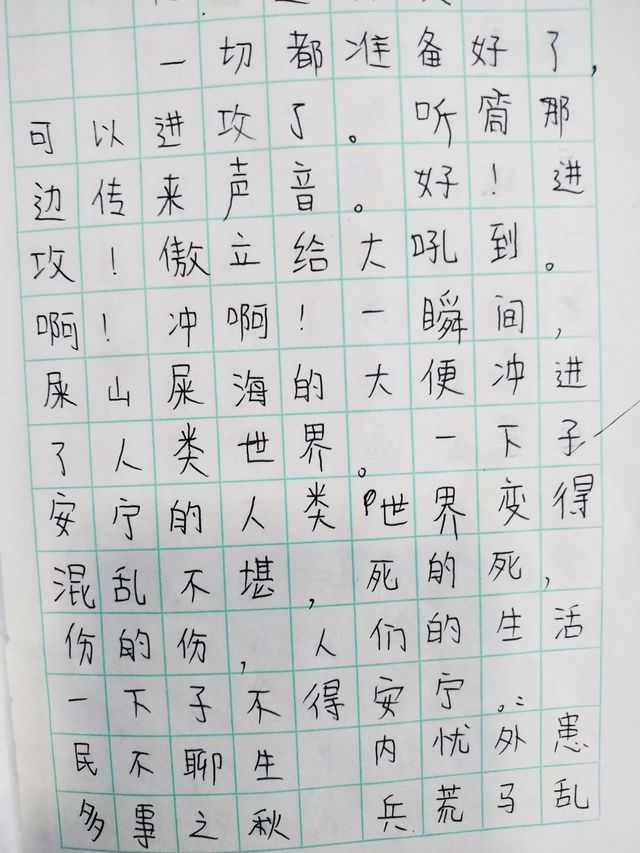 一切都准备好了，
可以进攻了。听筒那
边传来声音。好！进
攻！傲立给大吼到。
啊！冲啊！一瞬间，
屎山屎海的大便冲进
了人类世界。一下子
安宁的人类世界变得
混乱不堪，死的死，
份的份，人们的生活
一下子不得安宁。
民不聊生 内忧外患
多事之秋 兵荒马乱